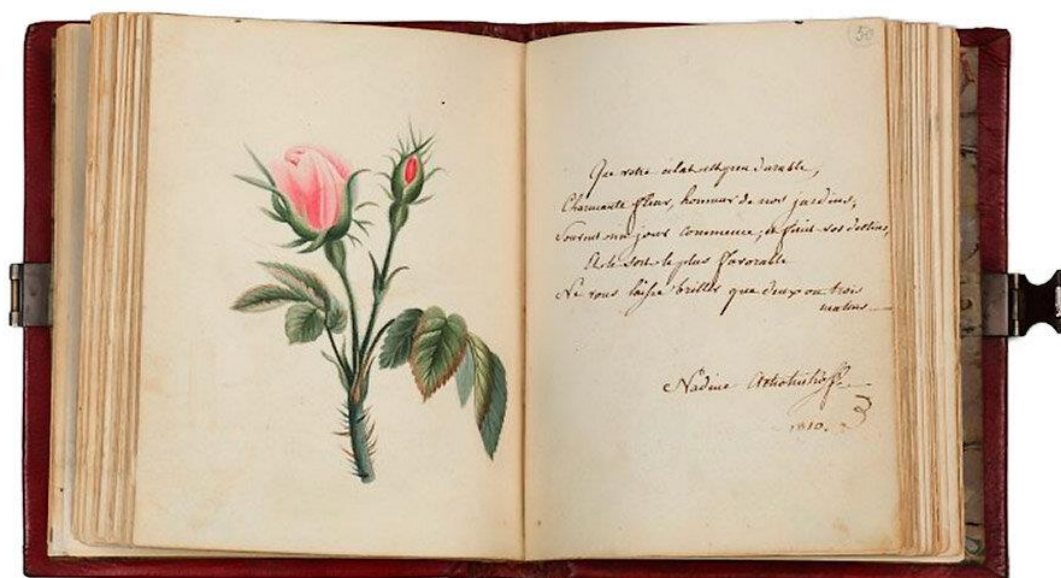 50
Que votre éclat est peu durable,
Charmante fleur, honneur de nos jardins,
Souvent un jour commence, et finit vos destins,
Et le sort le plus favorable
Ne vous laisse briller que deux ou trois
matins
Nadine
1810.